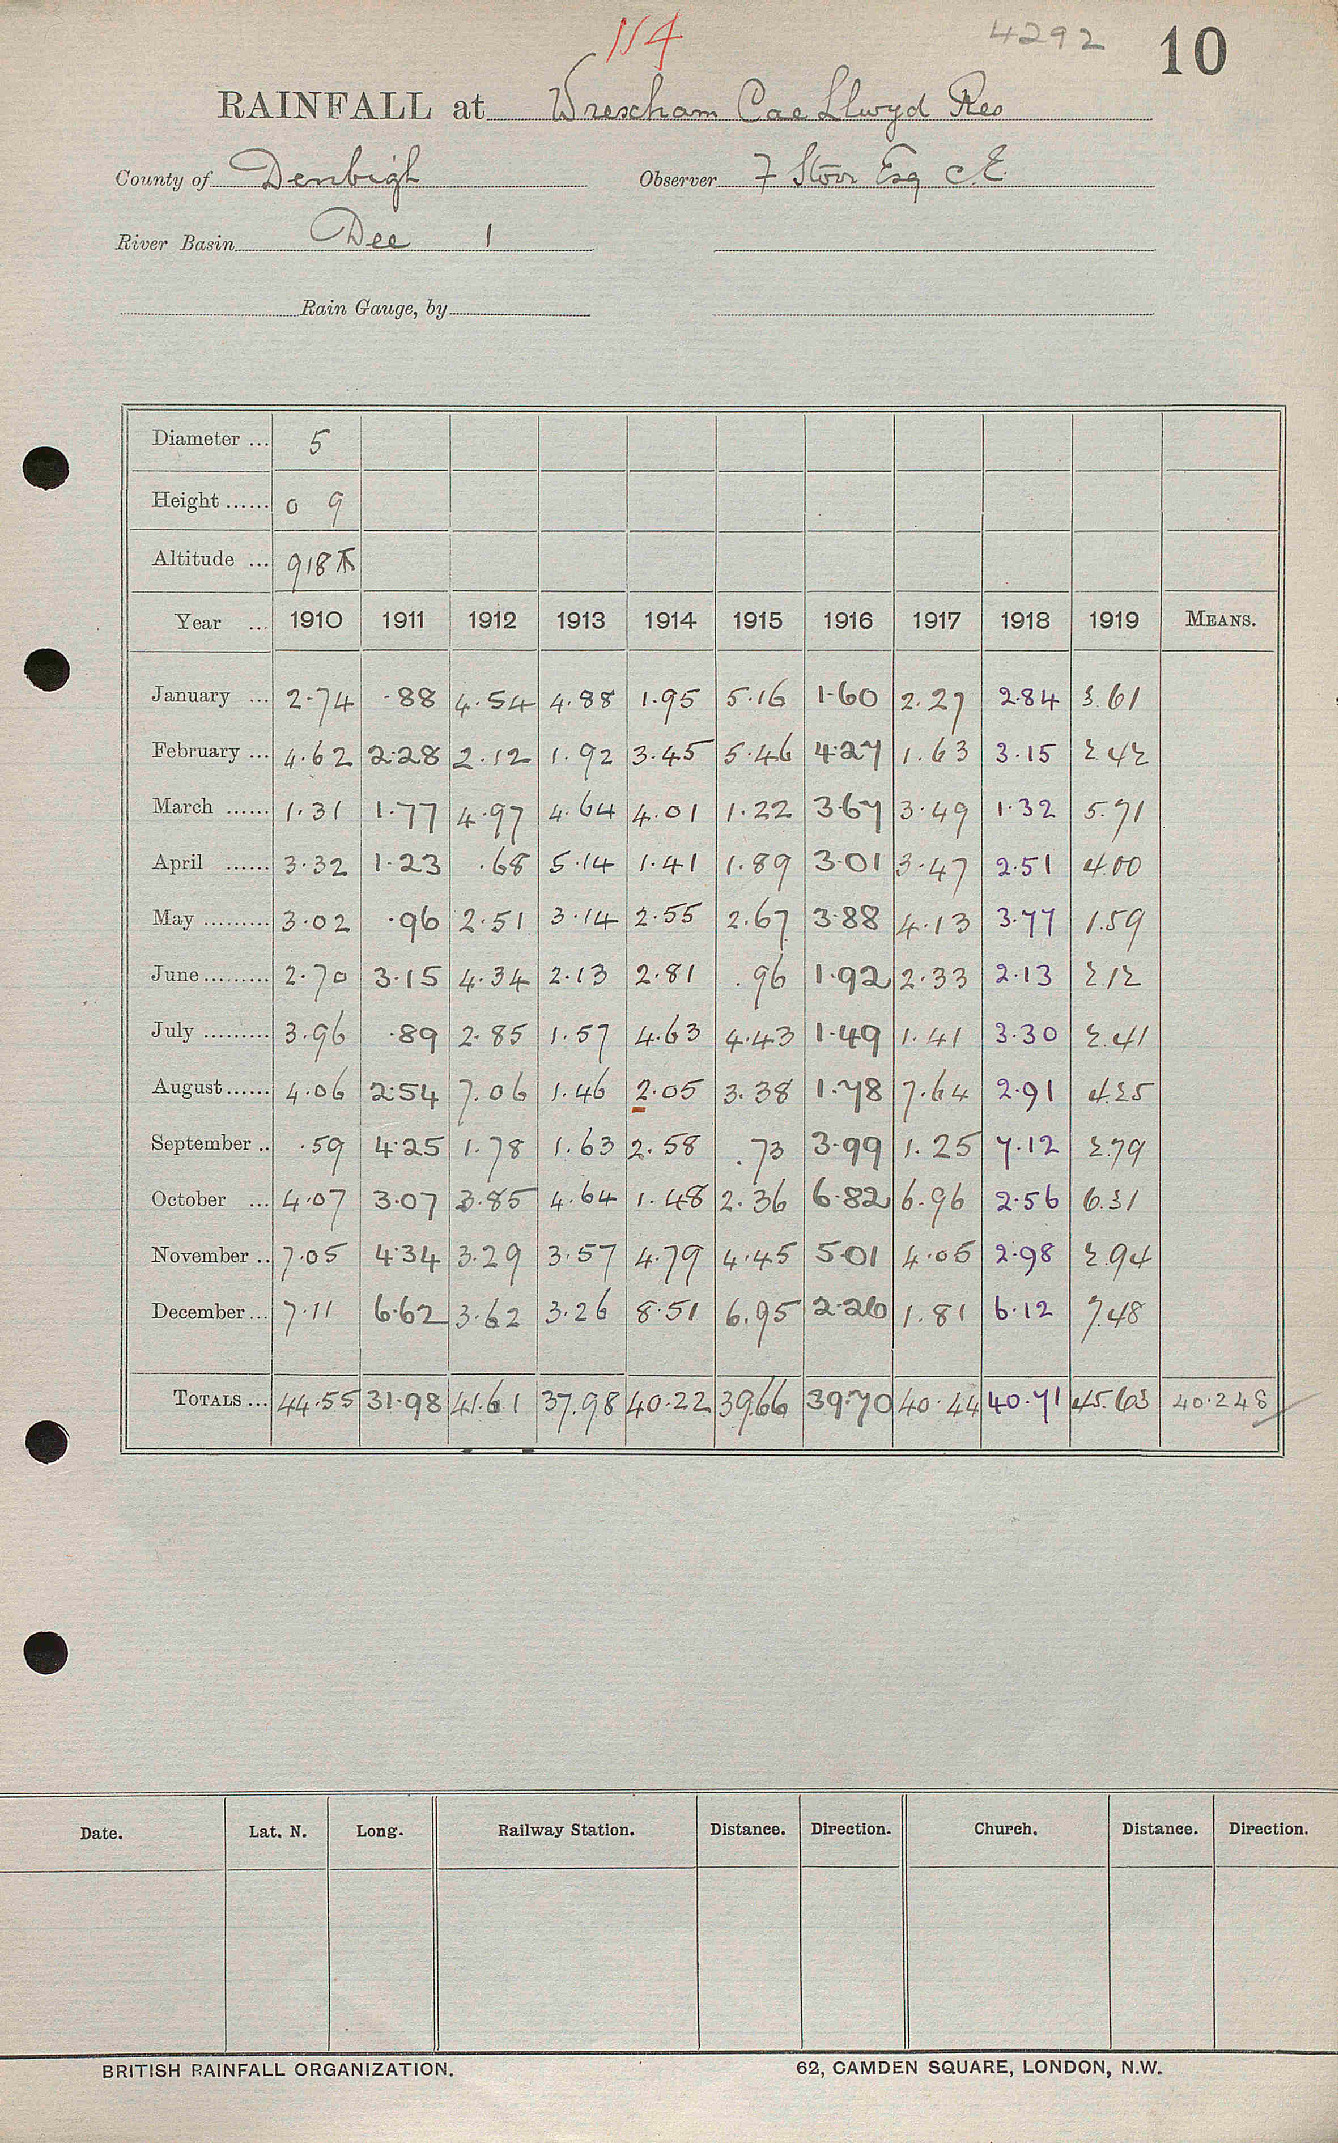 114 4292 10
RAINFALL at Wrexham Cae Llwyd Res
County of Denbigh Observer F Storr Esq C.E.
River Basin Dee 1
Rain Gauge, by
Diameter ... 5
Height ...... 0 9
Altitude ... 918
Year ... 1910 1911 1912 1913 1914 1915 1916 1917 1918 1919 MEANS.
January ... 2.74 .88 4.54 4.88 1.95 5.16 1.60 2.27 2.84 3.61
February ... 4.62 2.28 2.12 1.92 3.45 5.46 4.27 1.63 3.15 2.42
March ...... 1.31 1.77 4.97 4.64 4.01 1.22 3.67 3.49 1.32 5.71
April ...... 3.32 1.23 .68 5.14 1.41 1.89 3.01 3.47 2.51 4.00
May ......... 3.02 .96 2.51 3.14 2.55 2.67 3.88 4.13 3.77 1.59
June ......... 2.70 3.15 4.34 2.13 2.81 .96 1.92 2.33 2.13 2.12
July ......... 3.96 .89 2.85 1.57 4.63 4.43 1.49 1.41 3.30 2.41
August ...... 4.06 2.54 7.06 1.46 2.05 3.38 1.78 7.64 2.91 4.25
September .. .59 4.25 1.78 1.63 2.58 .73 3.99 1.25 7.12 2.79
October ... 4.07 3.07 3.85 4.64 1.48 2.36 6.82 6.96 2.56 6.31
November .. 7.05 4.34 3.29 3.57 4.79 4.45 5.01 4.05 2.98 2.94
December ... 7.11 6.62 3.62 3.26 8.51 6.95 2.26 1.81 6.12 7.48
TOTALS ... 44.55 31.98 41.61 37.98 40.22 39.66 39.70 40.44 40.71 45.63 40.248
Date. Lat. N. Long. Railway Station. Distance. Direction. Church. Distance. Direction.
BRITISH RAINFALL ORGANIZATION. 62, CAMDEN SQUARE, LONDON, N.W.